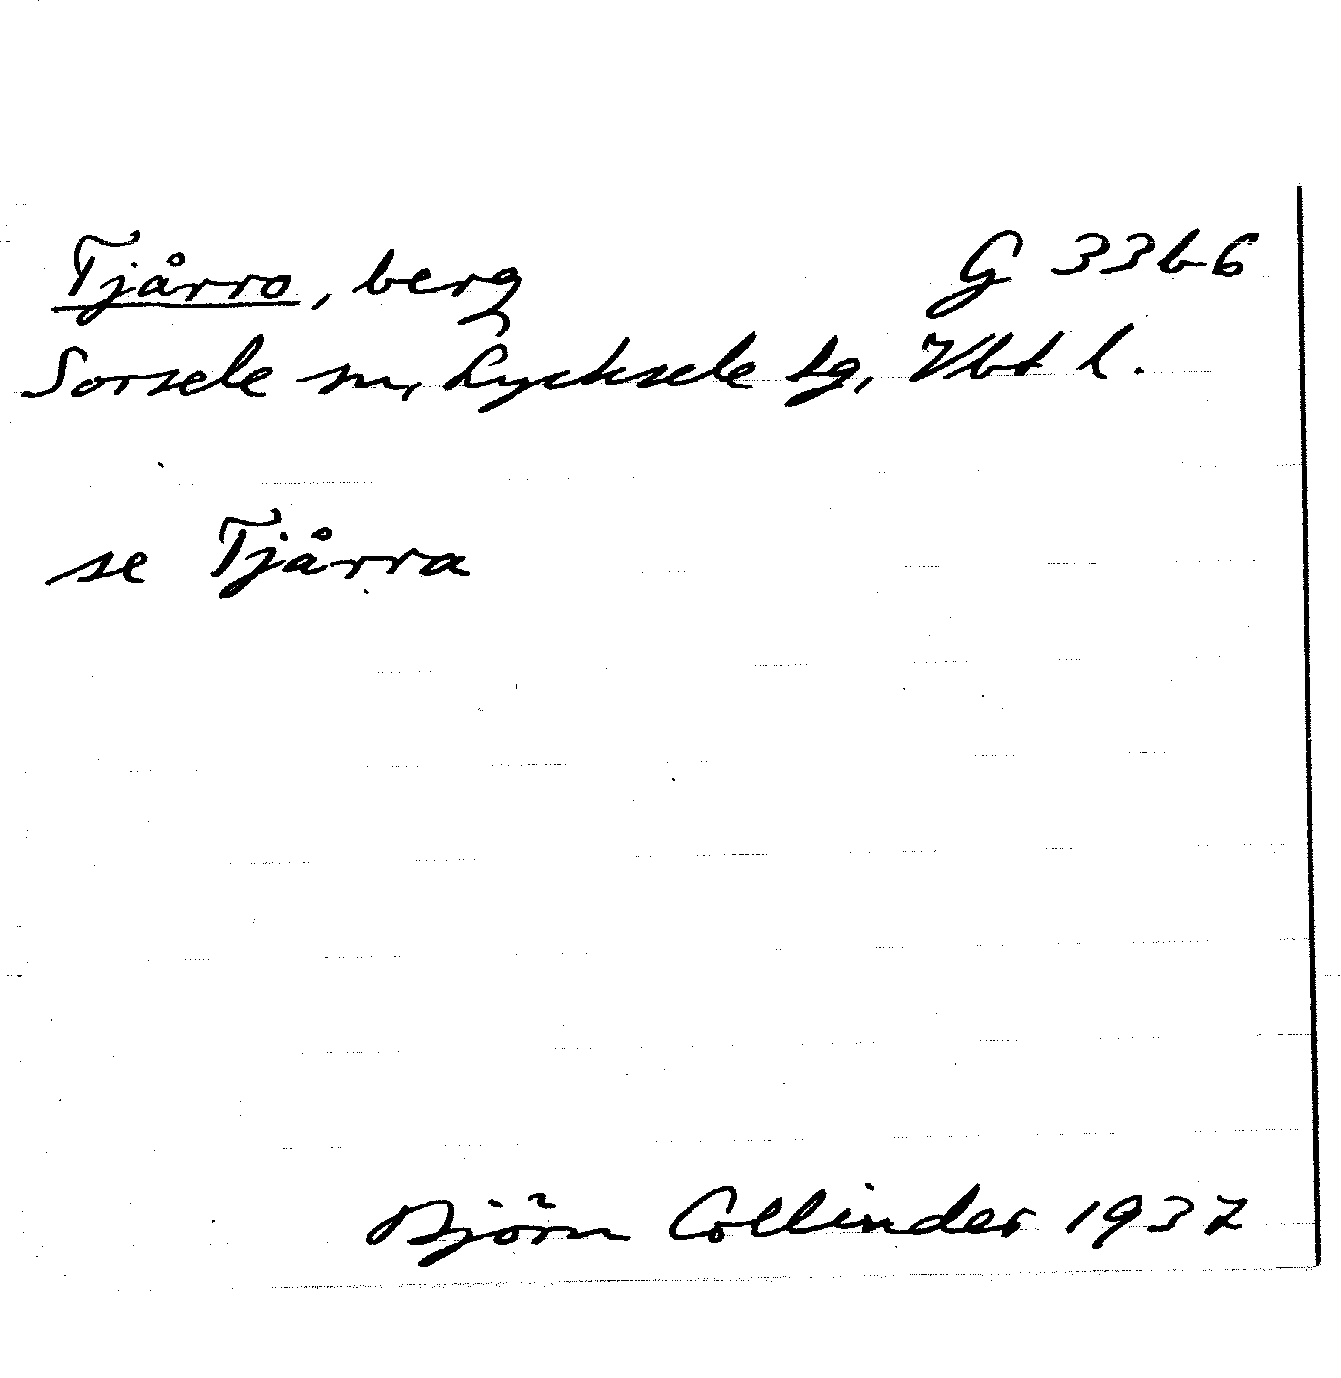 Tjårro, berg G 33b6
Sorsele sn, Lycksele lg, Vbt l.
se Tjårra
Björn Collinder 1937